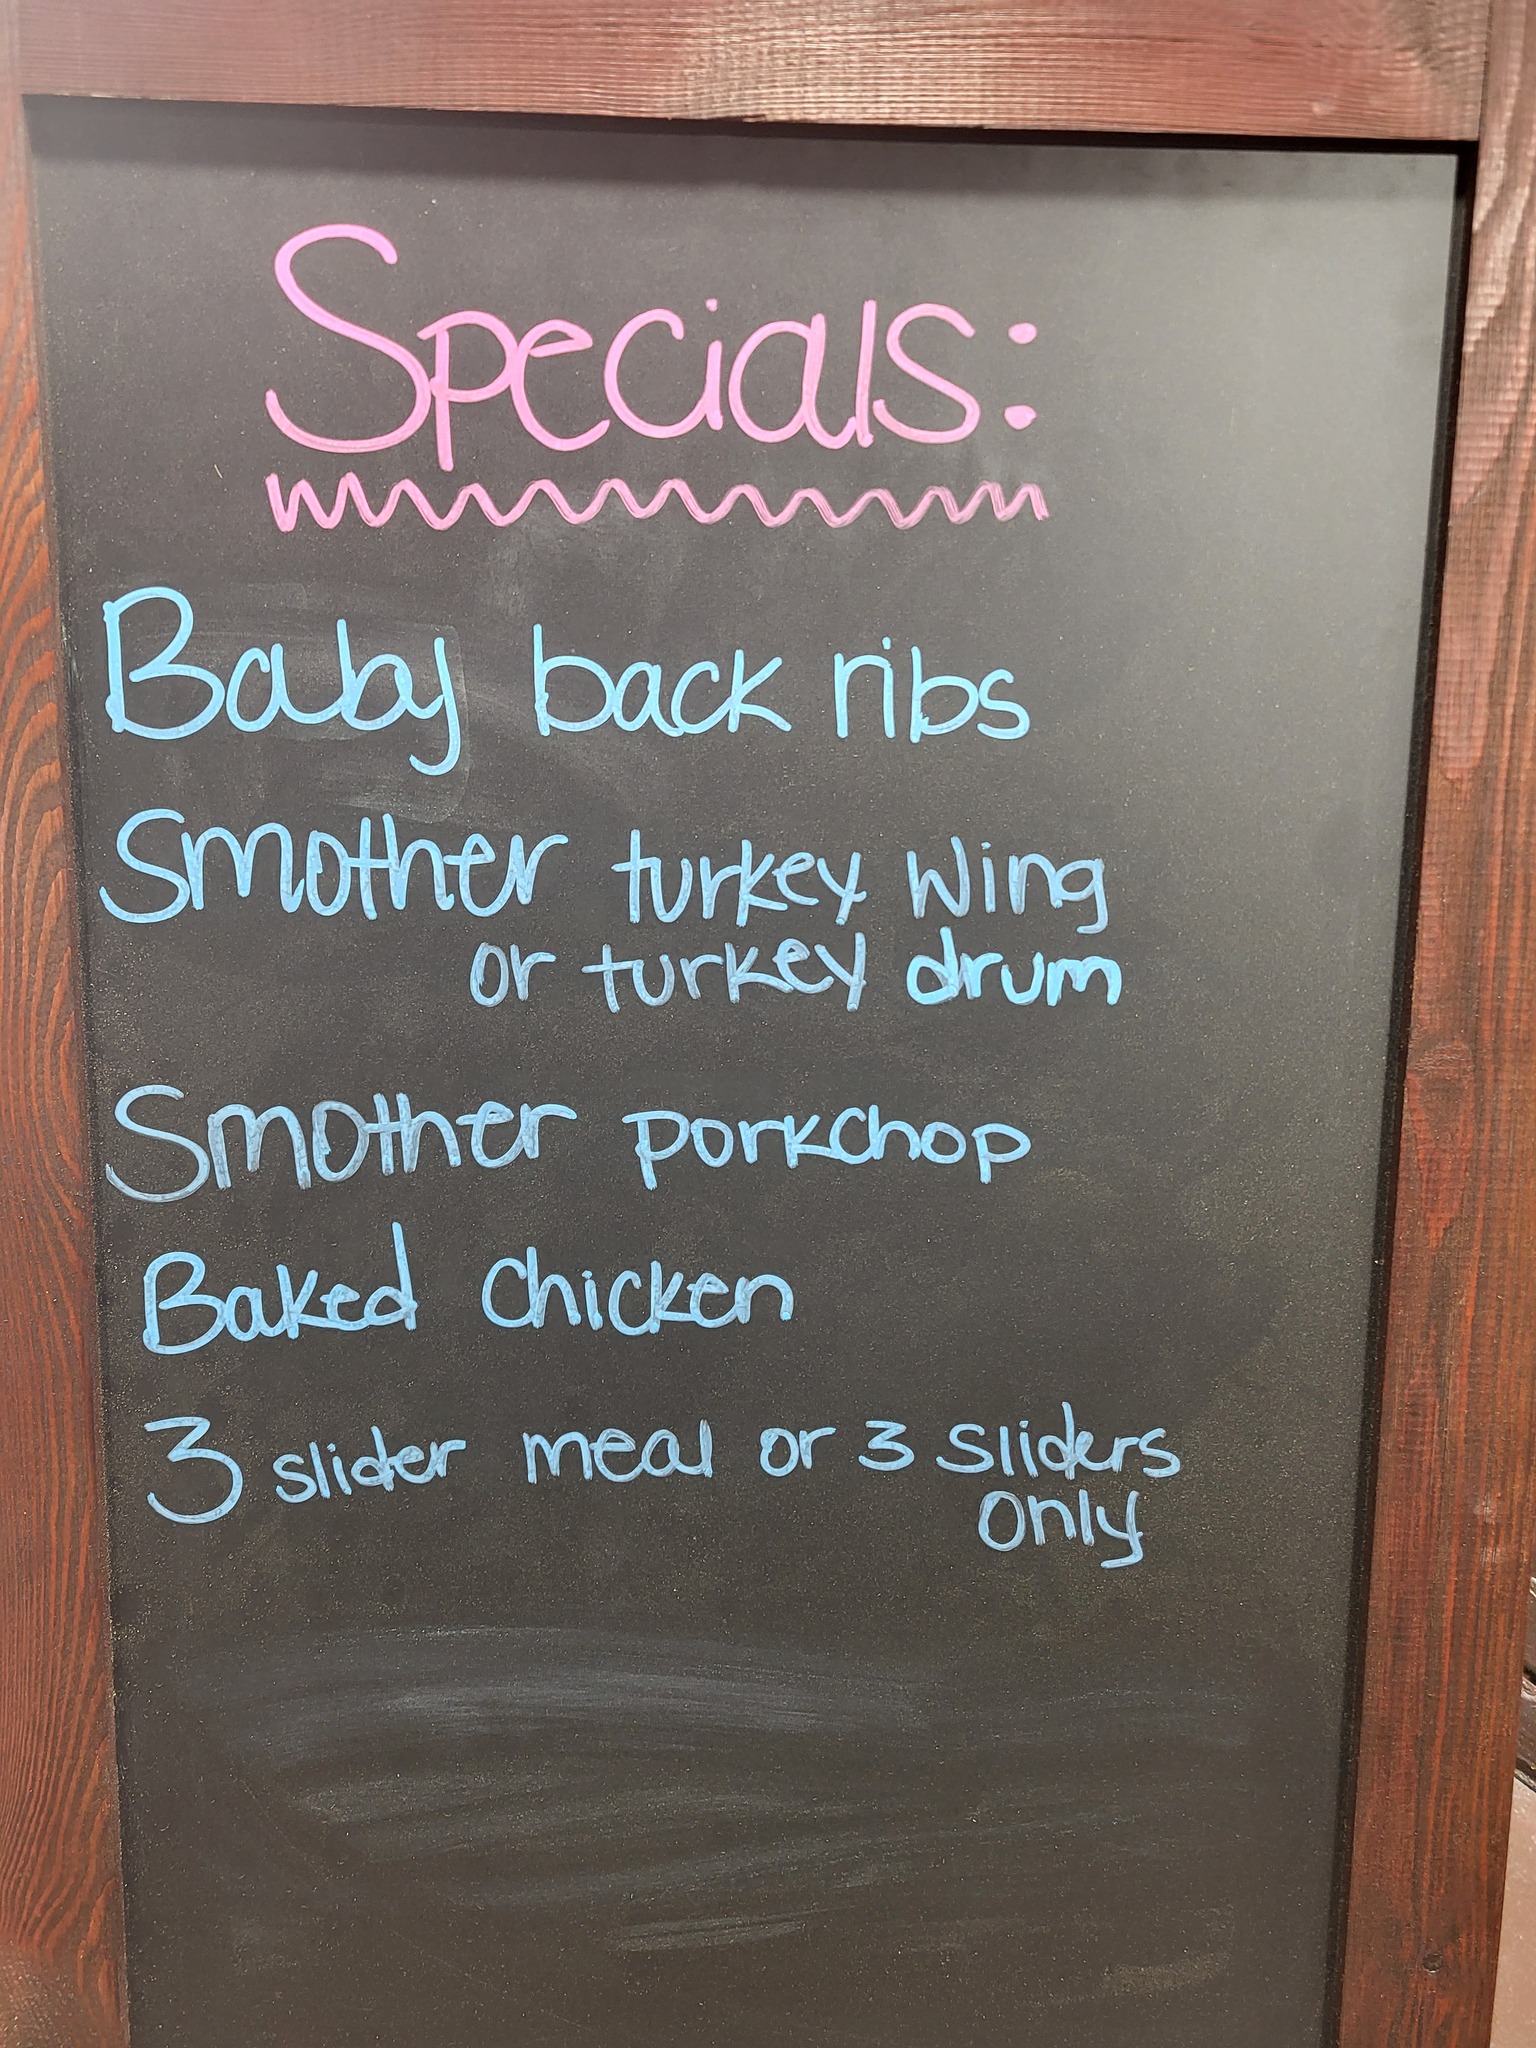 Specials:
Baby back ribs
Smother turkey Wing
or turkey drum
Smother porkchop
Baked chicken
3 slider meal or 3 sliders
only